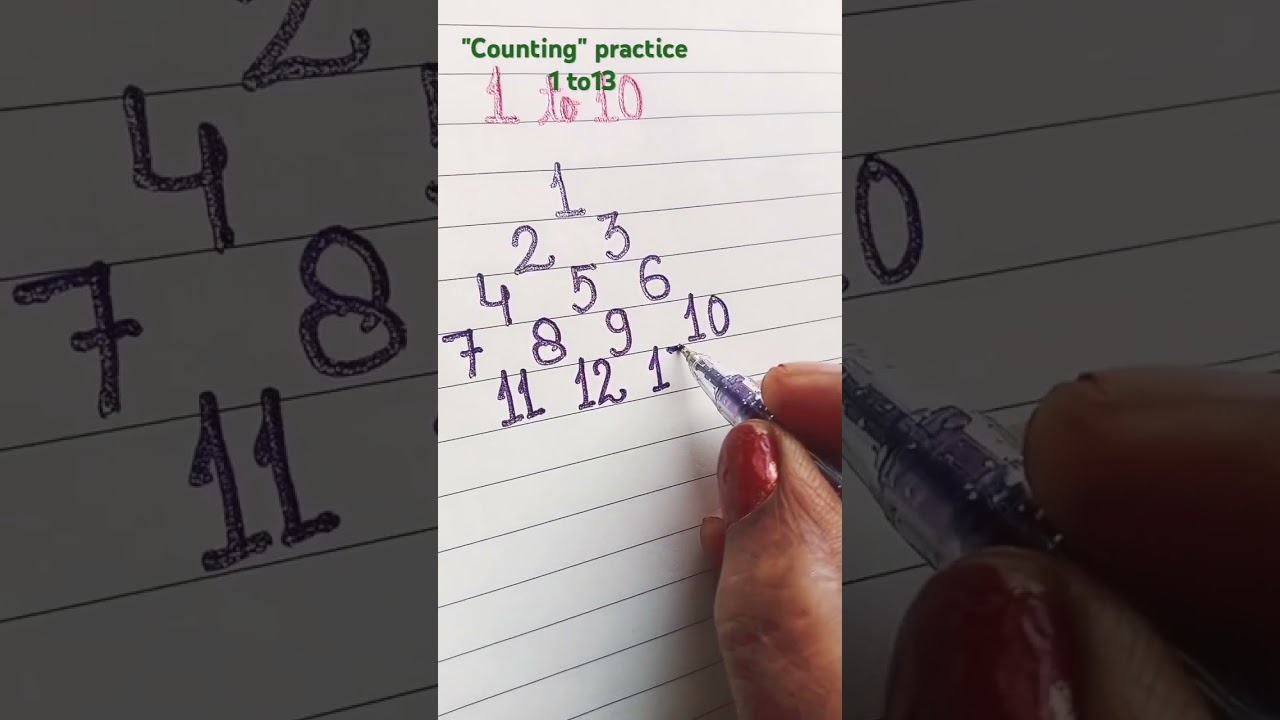 "Counting" practice
1 to13
1 to 10
1
2 3
4 5 6
7 8 9 10
11 12 1